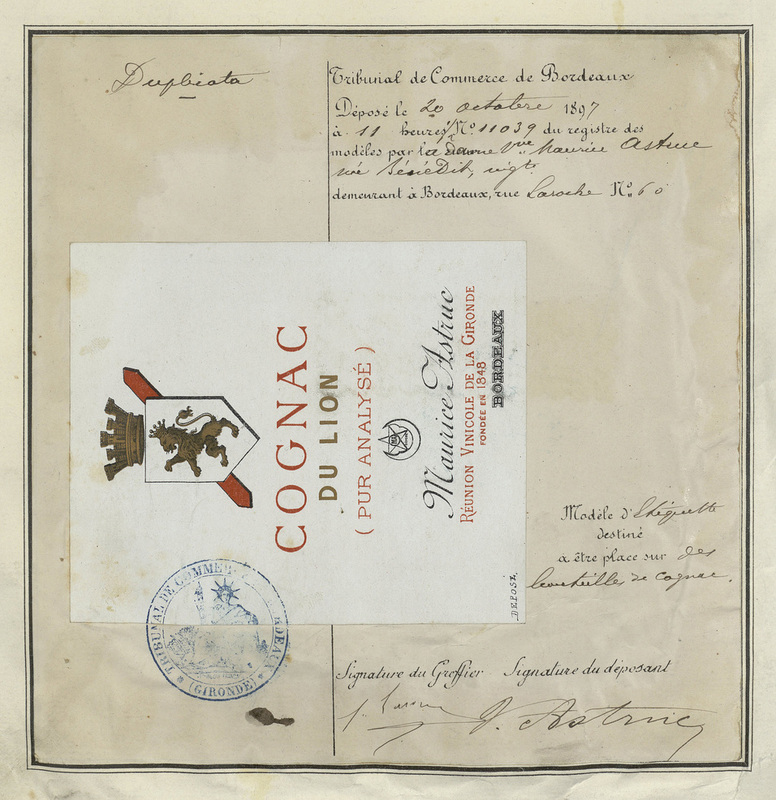 Duplicata
Tribunal de Commerce de Bordeaux
Déposé le 20 octobre 1897
à 11 heures Nº 11039 du registre des
modèles par la Dame Vve Maurice Astruc
née Bénédit, negte
demeurant à Bordeaux, rue Laroche Nº 60
COGNAC
DU LION
(PUR ANALYSÉ)
Maurice Astruc
RÉUNION VINICOLE DE LA GIRONDE
FONDÉE EN 1848
BORDEAUX
DÉPOSÉ.
Modèle d'Etiquette
destiné
à être placé sur des
bouteilles de Cognac.
TRIBUNAL DE COMMERCE DE BORDEAUX
(GIRONDE)
Signature du Greffier Signature du déposant
V. Astruc